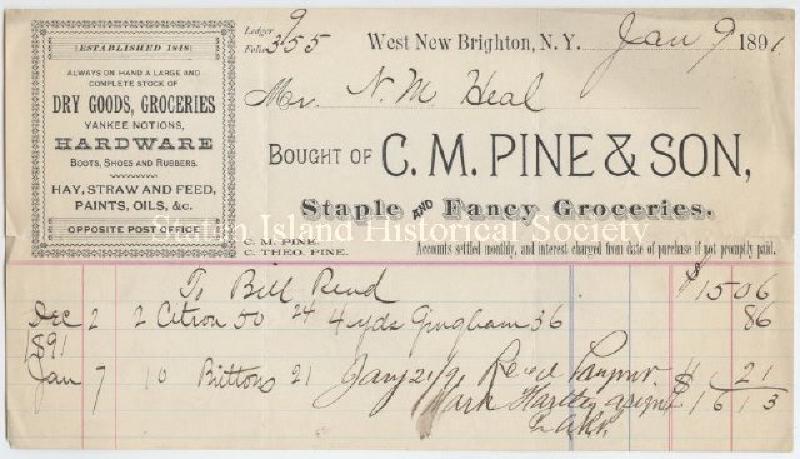 ESTABLISHED 1848
ALWAYS ON HAND A LARGE AND
COMPLETE STOCK OF
DRY GOODS, GROCERIES
YANKEE NOTIONS,
HARDWARE
BOOTS, SHOES AND RUBBERS.
HAY, STRAW AND FEED,
PAINTS, OILS, &c.
OPPOSITE POST OFFICE
Ledger 9
Folio 355
West New Brighton, N. Y. Jan 9 1891.
Mr. N. M. Heal
BOUGHT OF C. M. PINE & SON,
Staple AND Fancy Groceries.
Staten Island Historical Society
C. M. PINE.
C. THEO. PINE.
Accounts settled monthly, and interest charged from date of purchase if not promptly paid.
To Bill Rend $ 15 06
Dec 2 2 Citron 50 24 4 yds Gingham 36 86
1891
Jan 7 10 Buttons 21 Jany 21/91 Recd 21
Mark $ 16 13